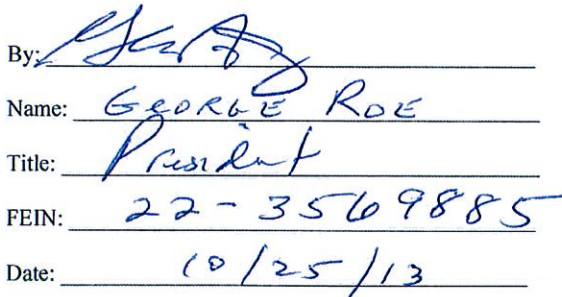 By:
Name: GEORGE ROE
Title: President
FEIN: 22-3569885
Date: 10/25/13